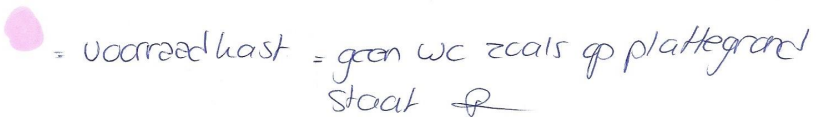 = voorraadkast = geen wc zoals op plattegrond
staat